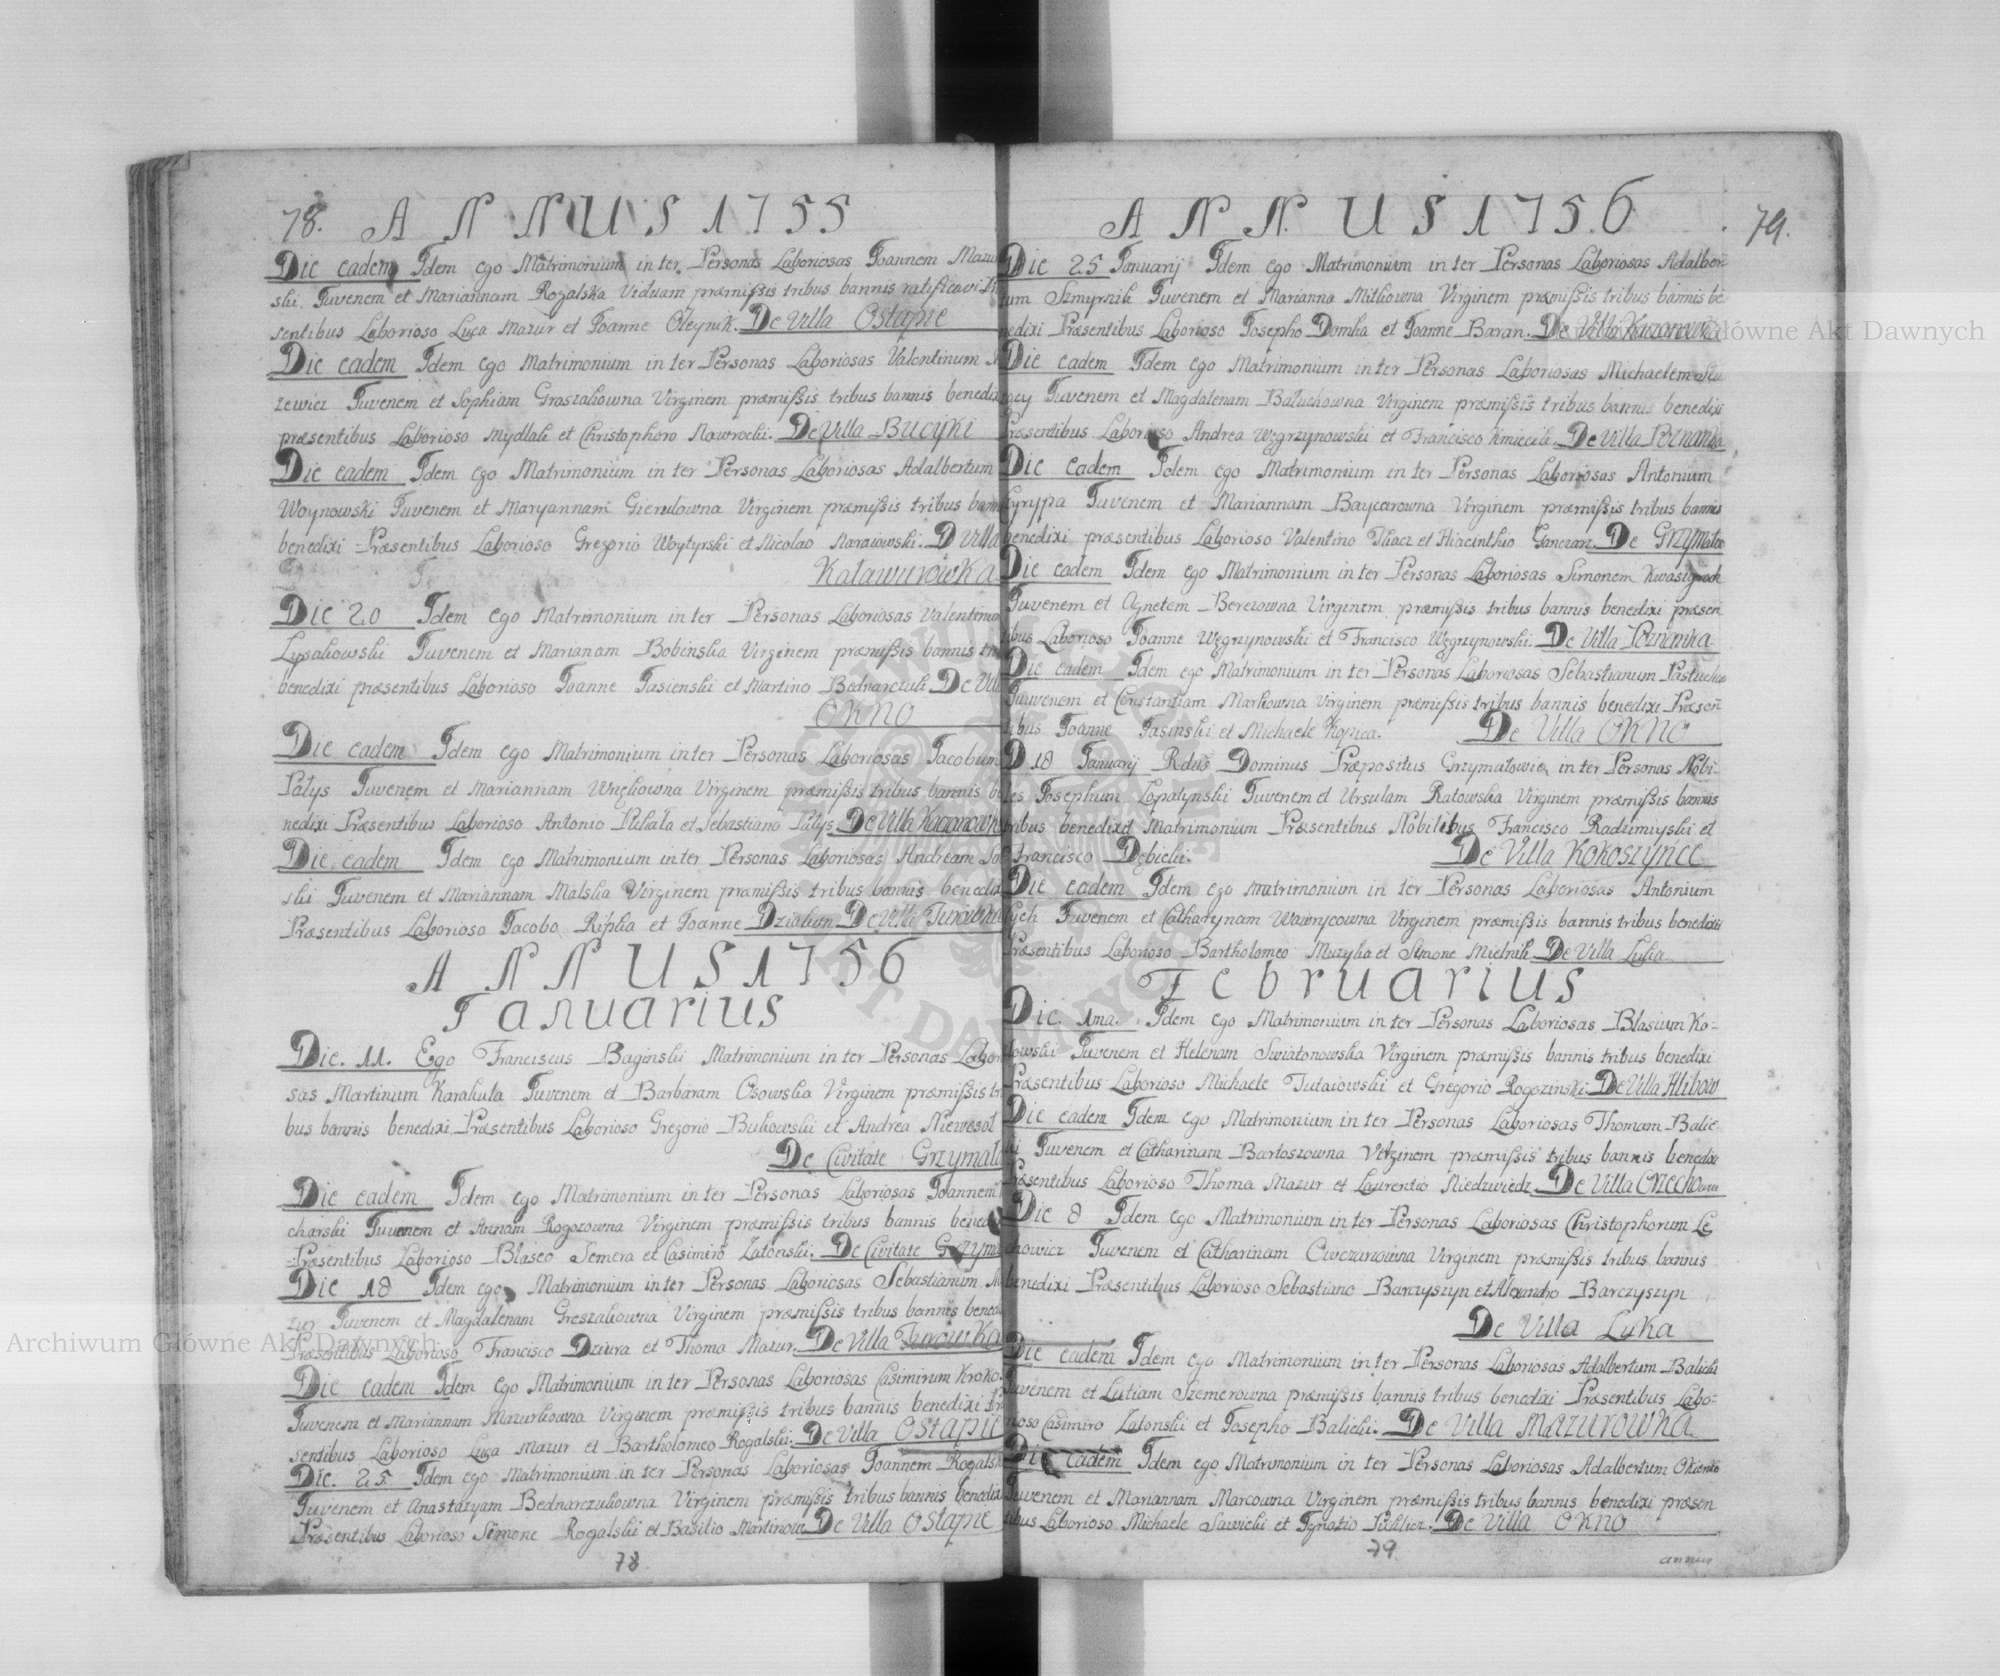 78. ANNUS 1755
Die eadem Idem ego Matrimonium inter Personas Laboriosas Joannem Mazur
ski Juvenem et Mariannam Rogalska Viduam præmissis tribus bannis ratificavi
sentibus Laborioso Luca Mazur et Joanne Oleynik. De Villa Ostapie
Die eadem Idem ego Matrimonium inter Personas Laboriosas Valentinum
zewicz Juvenem et Sophiam Groszakowna Virginem præmissis tribus bannis benedi
præsentibus Laborioso Mydlak et Christophoro Nawrocki. De Villa Bucyki
Die eadem Idem ego Matrimonium inter Personas Laboriosas Adalbertum
Woynowski Juvenem et Maryannam Gierulowna Virginem præmissis tribus bann
benedixi Præsentibus Laborioso Gregorio Woytyrski et Nicolao Naraiowski. D Villa
Kaławurowka
Die 20 Idem ego Matrimonium inter Personas Laboriosas Valentinu
Lysakowski Juvenem et Marianam Bobinska Virginem præmissis bannis tri
benedixi præsentibus Laborioso Joanne Jasienski et Martino Bednarczuk De Vill
OKNO
Die eadem Idem ego Matrimonium inter Personas Laboriosas Jacobum
Pałys Juvenem et Mariannam Wnękowna Virginem præmissis tribus bannis be
nedixi Præsentibus Laborioso Antonio Piskała et Sebastiano Pałys De Villa Kaczanowka
Die eadem Idem ego Matrimonium inter Personas Laboriosas Andream
ski Juvenem et Mariannam Malska Virginem præmissis tribus bannis benedi
Præsentibus Laborioso Jacobo Ripka et Joanne Dziakun De Villa Turowka
ANNUS 1756
Januarius
Die. 11. Ego Franciscus Baginski Matrimonium inter Personas Labori
sas Martinum Karakula Juvenem et Barbaram Osowska Virginem præmissis tri
bus bannis benedixi Præsentibus Laborioso Gregorio Bukowski et Andrea Niewesoł
De Civitate Grzymało
Die eadem Idem ego Matrimonium inter Personas Laboriosas Joannem
charski Juvenem et Annam Rogozowna Virginem præmissis tribus bannis bene
Præsentibus Laborioso Blaseo Semera et Casimiro Zatonski. De Civitate Grzyma
Die 18 Idem ego Matrimonium inter Personas Laboriosas Sebastianum
zur Juvenem et Magdalenam Greszakowna Virginem præmissis tribus bannis bened
Præsentibus Laborioso Francisco Dziura et Thoma Mazur. De Villa Turowka
Die eadem Idem ego Matrimonium inter Personas Laboriosas Casimirum Kroko
Juvenem et Mariannam Mazurkowna Virginem præmissis tribus bannis benedixi Præ
sentibus Laborioso Luca Mazur et Bartholomeo Rogalski. De Villa Ostapie
Die. 25. Idem ego Matrimonium inter Personas Laboriosas Joannem Rogalsk
Juvenem et Anastazyam Bednarczukowna Virginem præmissis tribus bannis benedix
Præsentibus Laborioso Simone Rogalski et Basilio Martinow De Villa Ostapie
78
ANNUS 1756. 79.
Die 25 Januarij Idem ego Matrimonium inter Personas Laboriosas Adalber
tum Szmyrnik Juvenem et Marianna Mitkowna Virginem præmissis tribus bannis be
nedixi Præsentibus Laborioso Josepho Domka et Joanne Baran. De Villa Kaczanowka
Die eadem Idem ego Matrimonium inter Personas Laboriosas Michaelem
gey Juvenem et Magdalenam Bałuchowna Virginem præmissis tribus bannis benedixi
Præsentibus Laborioso Andrea Węgrzynowski et Francisco Kmiecik. De Villa Poznanka
Die eadem Idem ego Matrimonium inter Personas Laboriosas Antonium
Gyryppa Juvenem et Mariannam Baycarowna Virginem præmissis tribus bannis
benedixi præsentibus Laborioso Valentino Tkacz et Hiacinthio Ganczarz. De Grzymałow
Die eadem Idem ego Matrimonium inter Personas Laboriosas Simonem Kwasigroch
Juvenem et Agnetem Berezowna Virginem præmissis tribus bannis benedixi præsen
tibus Laborioso Joanne Węgrzynowski et Francisco Węgrzynowski. De Villa Poznanka
Die eadem Idem ego Matrimonium inter Personas Laboriosas Sebastianum Pastuche
Juvenem et Constantiam Markowna Virginem præmissis tribus bannis benedixi Præsen
tibus Joanne Jasinski et Michaele Kopica. De Villa OKNO
D 18 Januarij Rdus Dominus Præpositus Grzymałowien inter Personas Nobi-
les Josephum Łopatynski Juvenem et Ursulam Ratowska Virginem præmissis bannis
tribus benedixit Matrimonium Præsentibus Nobilibus Francisco Radzimiyski et
Francisco Dębicki. De Villa Kokoszynce
Die eadem Idem ego matrimonium inter Personas Laboriosas Antonium
łych Juvenem et Catharynam Wawrycowna Virginem præmissis bannis tribus benedixi
Præsentibus Laborioso Bartholomeo Muzyka et Simone Mielnik De Villa Luka
Februarius
Die. 1ma. Idem ego Matrimonium inter Personas Laboriosas Blasium Ko-
łowski Juvenem et Helenam Swiatonowska Virginem præmissis bannis tribus benedixi
Præsentibus Laborioso Michaele Tutaiowski et Gregorio Rogozinski. De Villa Hlibow
Die eadem Idem ego Matrimonium inter Personas Laboriosas Thomam Balic
ki Juvenem et Catharinam Bartoszowna Virginem præmissis tribus bannis benedixi
Præsentibus Laborioso Thoma Mazur et Laurentio Niedzwiedz De Villa Orzechowiec
Die 8 Idem ego Matrimonium inter Personas Laboriosas Christophorum Le
chowicz Juvenem et Catharinam Owczarowna Virginem præmissis tribus bannis
benedixi Præsentibus Laborioso Sebastiano Barczyszyn et Alexandro Barczyszyn
De Villa Luka
Die eadem Idem ego Matrimonium inter Personas Laboriosas Adalbertum Balicki
Juvenem et Lutiam Szemerowna præmissis bannis tribus benedixi Præsentibus Labo-
rioso Casimiro Zatonski et Josepho Balicki. De Villa Mazurowka
Die eadem Idem ego Matrimonium inter Personas Laboriosas Adalbertum Okienko
Juvenem et Mariannam Marcowna Virginem præmissis tribus bannis benedixi præsen
tibus Laborioso Michaele Sawicki et Ignatio Puklicz. De Villa OKNO
79
annus
Archiwum Główne Akt Dawnych
Archiwum Główne Akt Dawnych